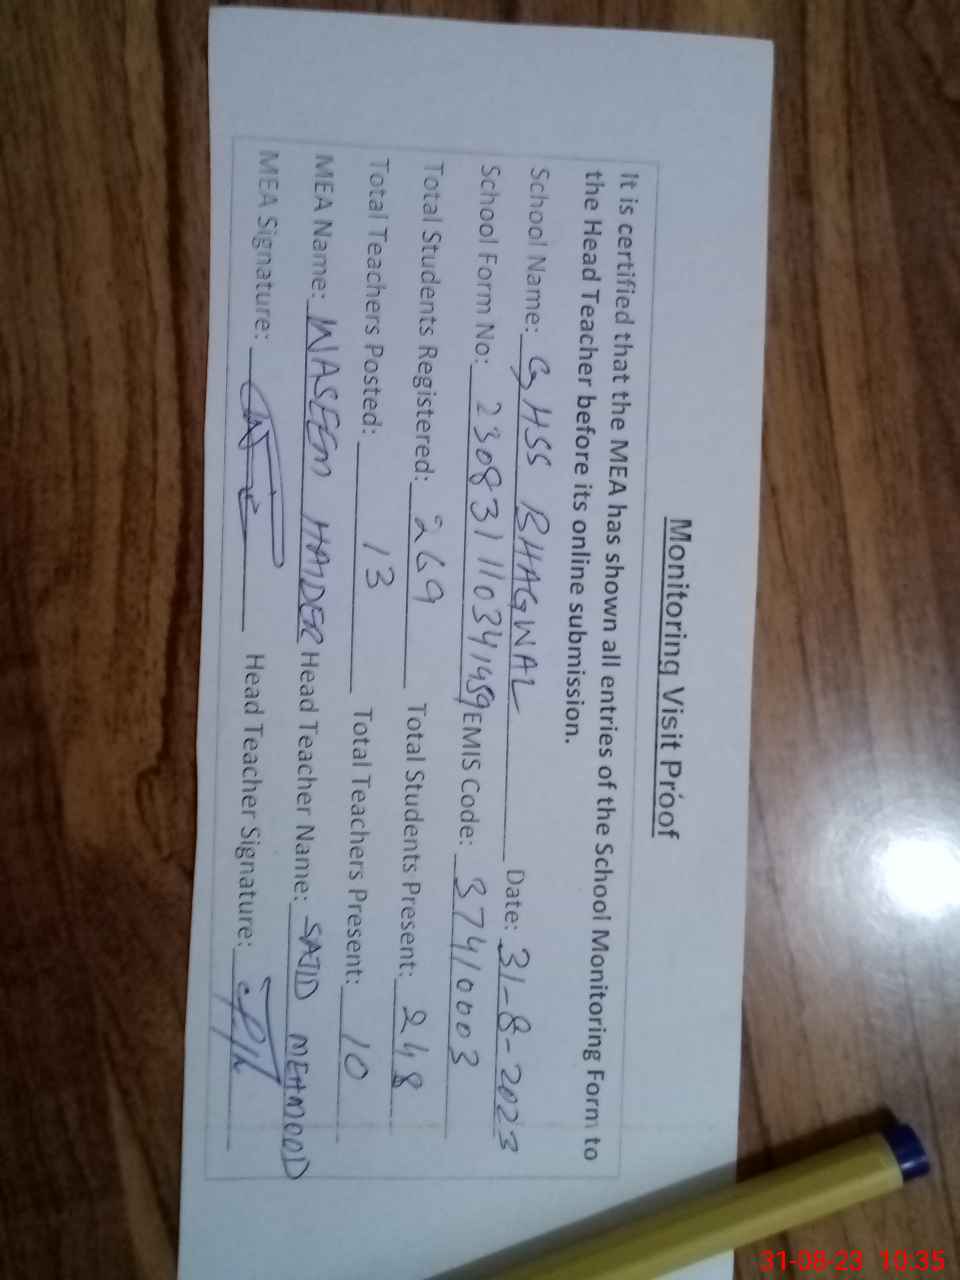 Monitoring Visit Proof
It is certified that the MEA has shown all entries of the School Monitoring Form to
the Head Teacher before its online submission.
School Name: GHSS BHAGWAL Date: 31-8-2023
School Form No: 230831110341459 EMIS Code: 37410003
Total Students Registered: 269 Total Students Present: 248
Total Teachers Posted: 13 Total Teachers Present: 10
MEA Name: WASEEM HAIDER Head Teacher Name: SAJID MEHMOOD
MEA Signature: Head Teacher Signature:
31-08-23 10:35